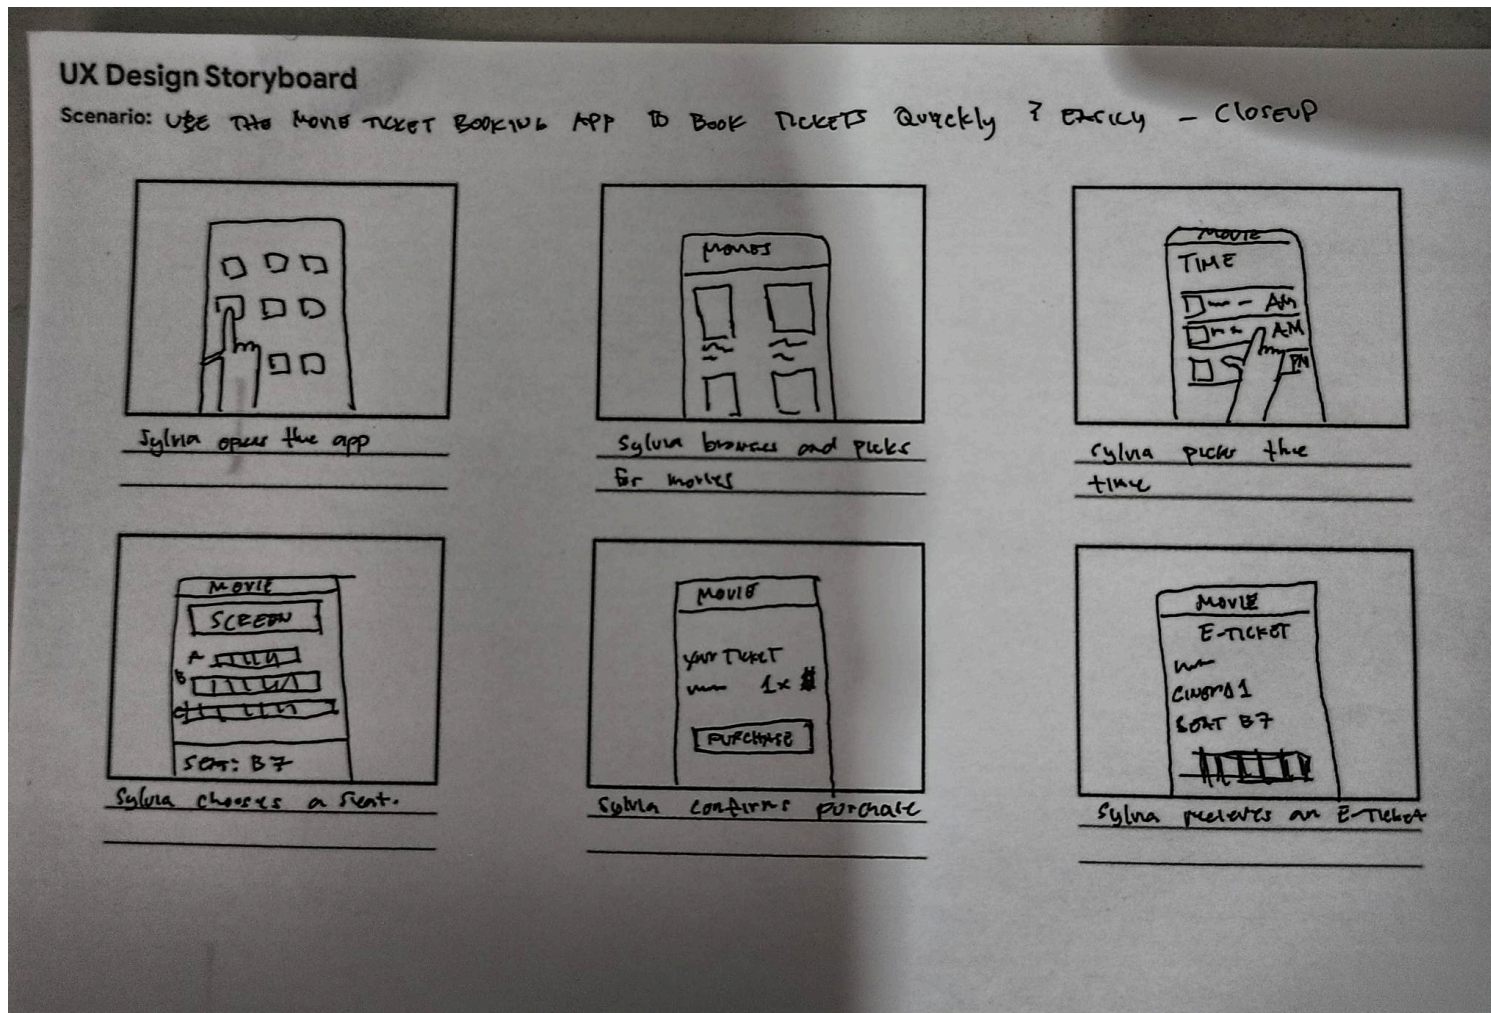 UX Design Storyboard
Scenario: USE THE MOVIE TICKET BOOKING APP TO BOOK TICKETS QUICKLY & EASILY - CLOSEUP
Sylvia opens the app
MOVIES
Sylvia browses and picks
for movies
MOVIE
TIME
AM
AM
PM
Sylvia picks the
time
MOVIE
SCREEN
A
B
C
SEAT: B7
Sylvia chooses a seat.
MOVIE
YOUR TICKET
1x
PURCHASE
Sylvia confirms purchase
MOVIE
E-TICKET
CINEMA 1
SEAT B7
Sylvia receives an E-Ticket